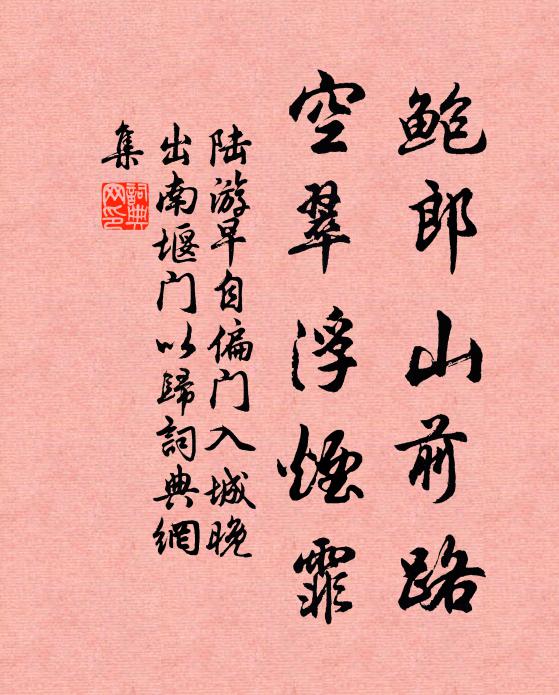 鲍郎山前路
空翠浮煙霏
陆游早自偏门入城晚
出南堰门以歸詞典網
集
詞典
网印